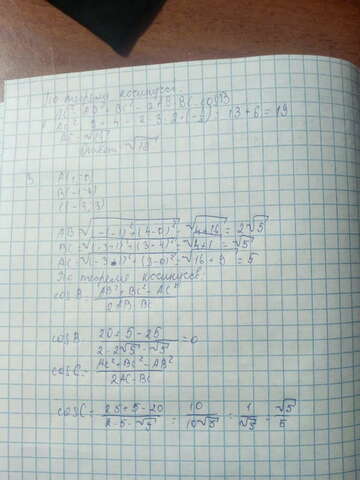 По теореме косинусов
AC² = AB² + BC² - 2AB·BC·cosB
AC² = 9 + 4 - 2·3·2·(-½) = 13 + 6 = 19
AC = √19
Ответ √19
3
A(1;0)
B(-1;4)
C(-3;3)
AB √(-1-1)² + (4-0)² = √4+16 = 2√5
BC = √(-3+1)² + (3-4)² = √4+1 = √5
AC = √(-3-1)² + (3-0)² = √16+9 = 5
По теореме косинусов
cosB = AB² + BC² - AC² / 2AB·BC
cosB 20+5-25 / 2·2√5·√5 = 0
cosC = AC² + BC² - AB² / 2AC·BC
cosC = 25+5-20 / 2·5·√5 = 10 / 10√5 = 1 / √5 = √5 / 5